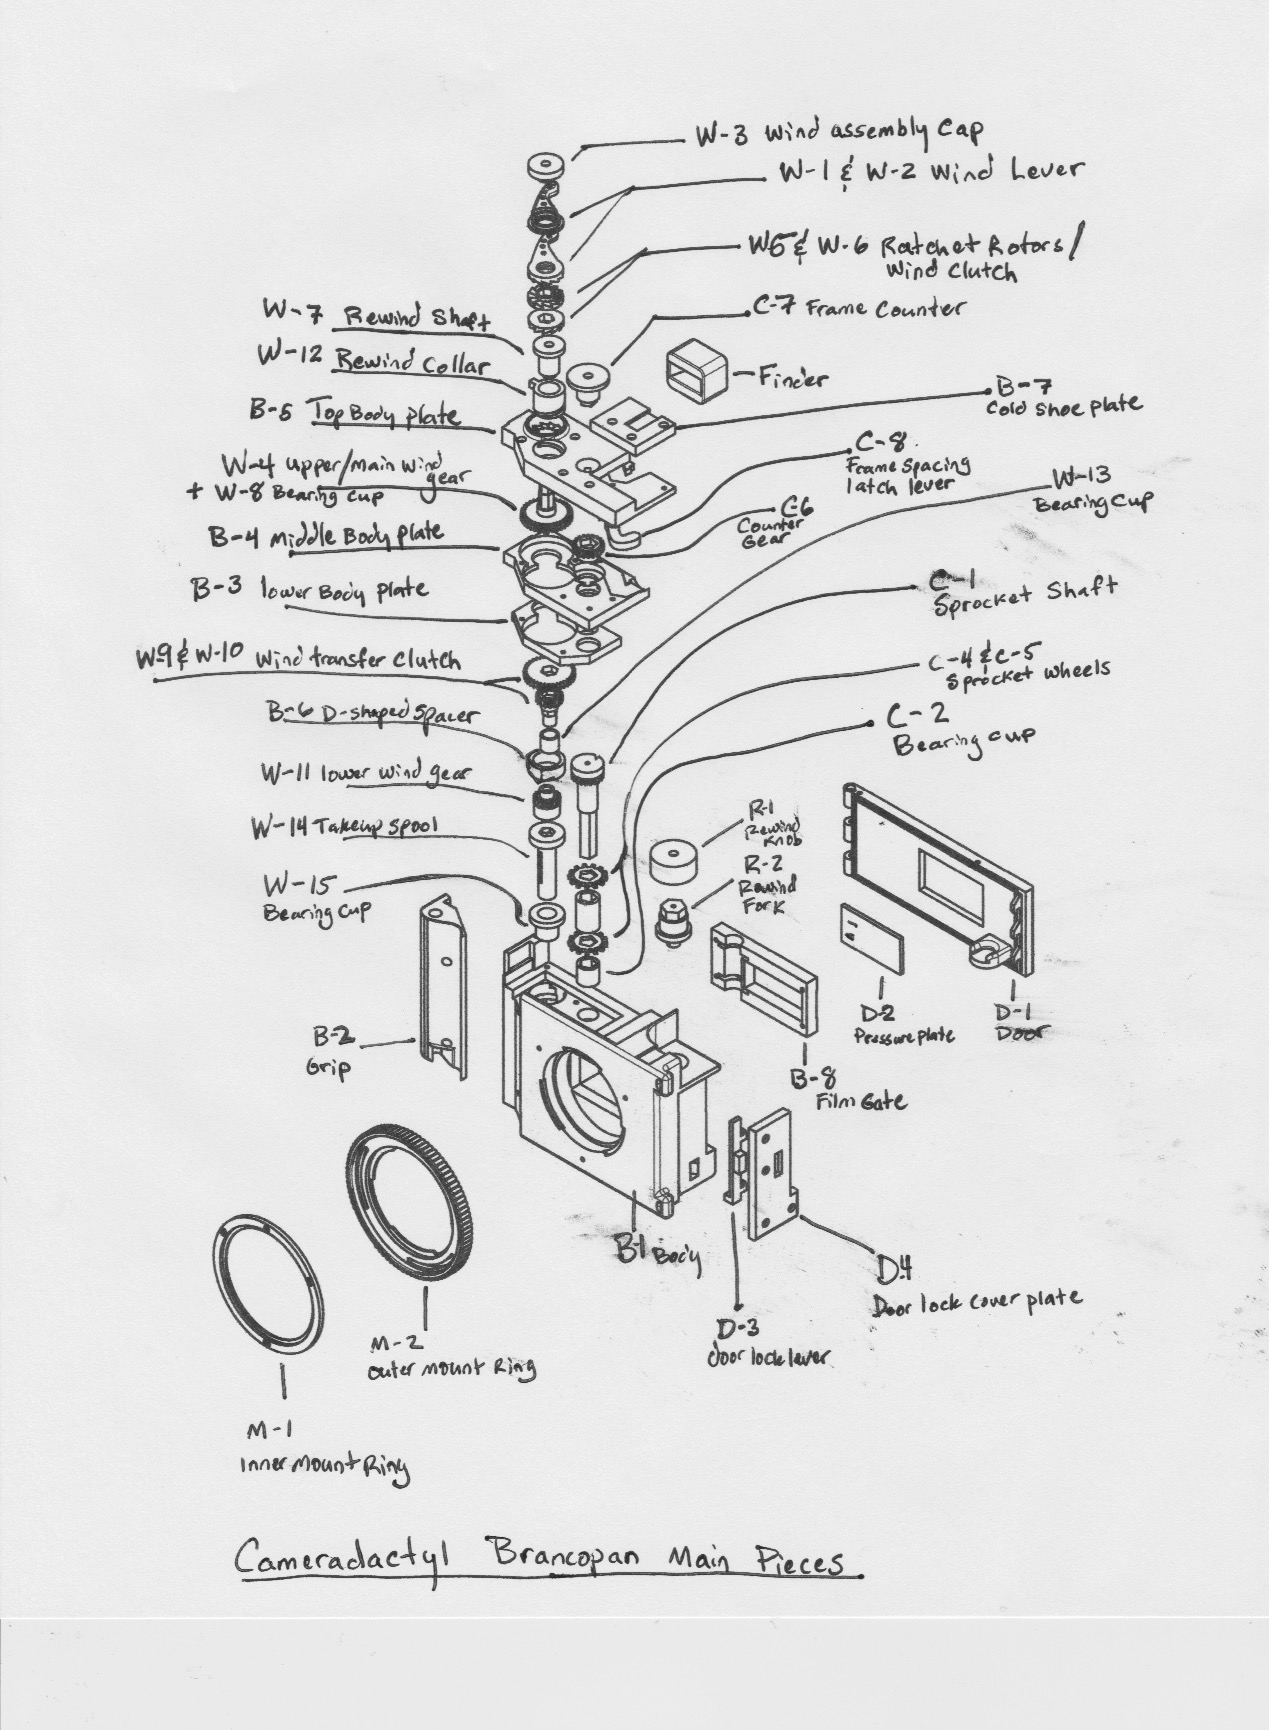 W-3 Wind assembly Cap
W-1 & W-2 Wind Lever
W5 & W-6 Ratchet Rotors/
Wind Clutch
W-7 Rewind Shaft
C-7 Frame Counter
W-12 Rewind Collar
Finder
B-7
Cold shoe plate
B-5 Top Body plate
C-8
Frame spacing
latch lever
W-4 upper/main wind
gear
+ W-8 Bearing cup
W-13
Bearing Cup
C-6
Counter
Gear
B-4 Middle Body plate
B-3 lower Body plate
C-1
Sprocket Shaft
W-9 & W-10 Wind transfer clutch
C-4 & C-5
Sprocket wheels
B-6 D-shaped spacer
C-2
Bearing cup
W-11 lower wind gear
W-14 Takeup spool
R-1
Rewind
Knob
R-2
Rewind
Fork
W-15
Bearing Cup
B-2
Grip
D-2
Pressure plate
D-1
Door
B-8
Film Gate
B-1 Body
D4
Door lock cover plate
D-3
door lock lever
M-2
outer mount Ring
M-1
inner mount Ring
Cameradactyl Brancopan Main Pieces